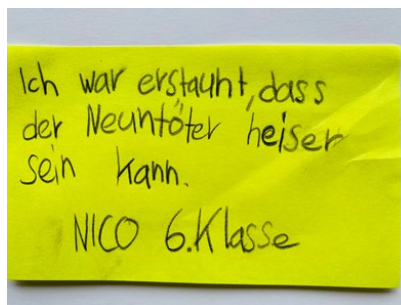 Ich war erstaunt, dass
der Neuntöter heiser
sein kann.
NICO 6. Klasse